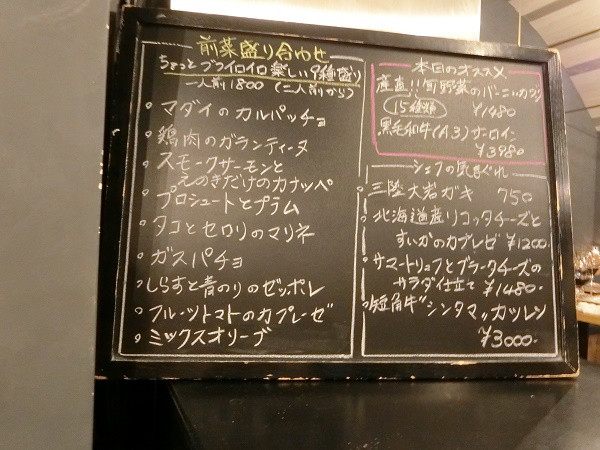 前菜盛り合わせ
ちょっとプライロイロ楽しい9種盛り
一人前1800(二人前から)
・マダイのカルパッチョ
・鶏肉のガランティーヌ
・スモークサーモンと
えのきだけのカナッペ
・プロシュートとプラム
・タコとセロリのマリネ
・ガスパチョ
・しらすと青のりのゼッポレ
・フルーツトマトのカプレーゼ
・ミックスオリーブ
本日のオススメ
産直!!旬野菜のバーニャカウダ
15種類 ¥1480
黒毛和牛(A3)サーロイン
¥3980
シェフの気まぐれ
・三陸大岩ガキ 750
・北海道産リコッタチーズと
すいかのカプレゼ ¥1200
・サマートリュフとブラータチーズの
サラダ仕立て ¥1480.
・短角牛"シンタマ"カツレツ
¥3000.